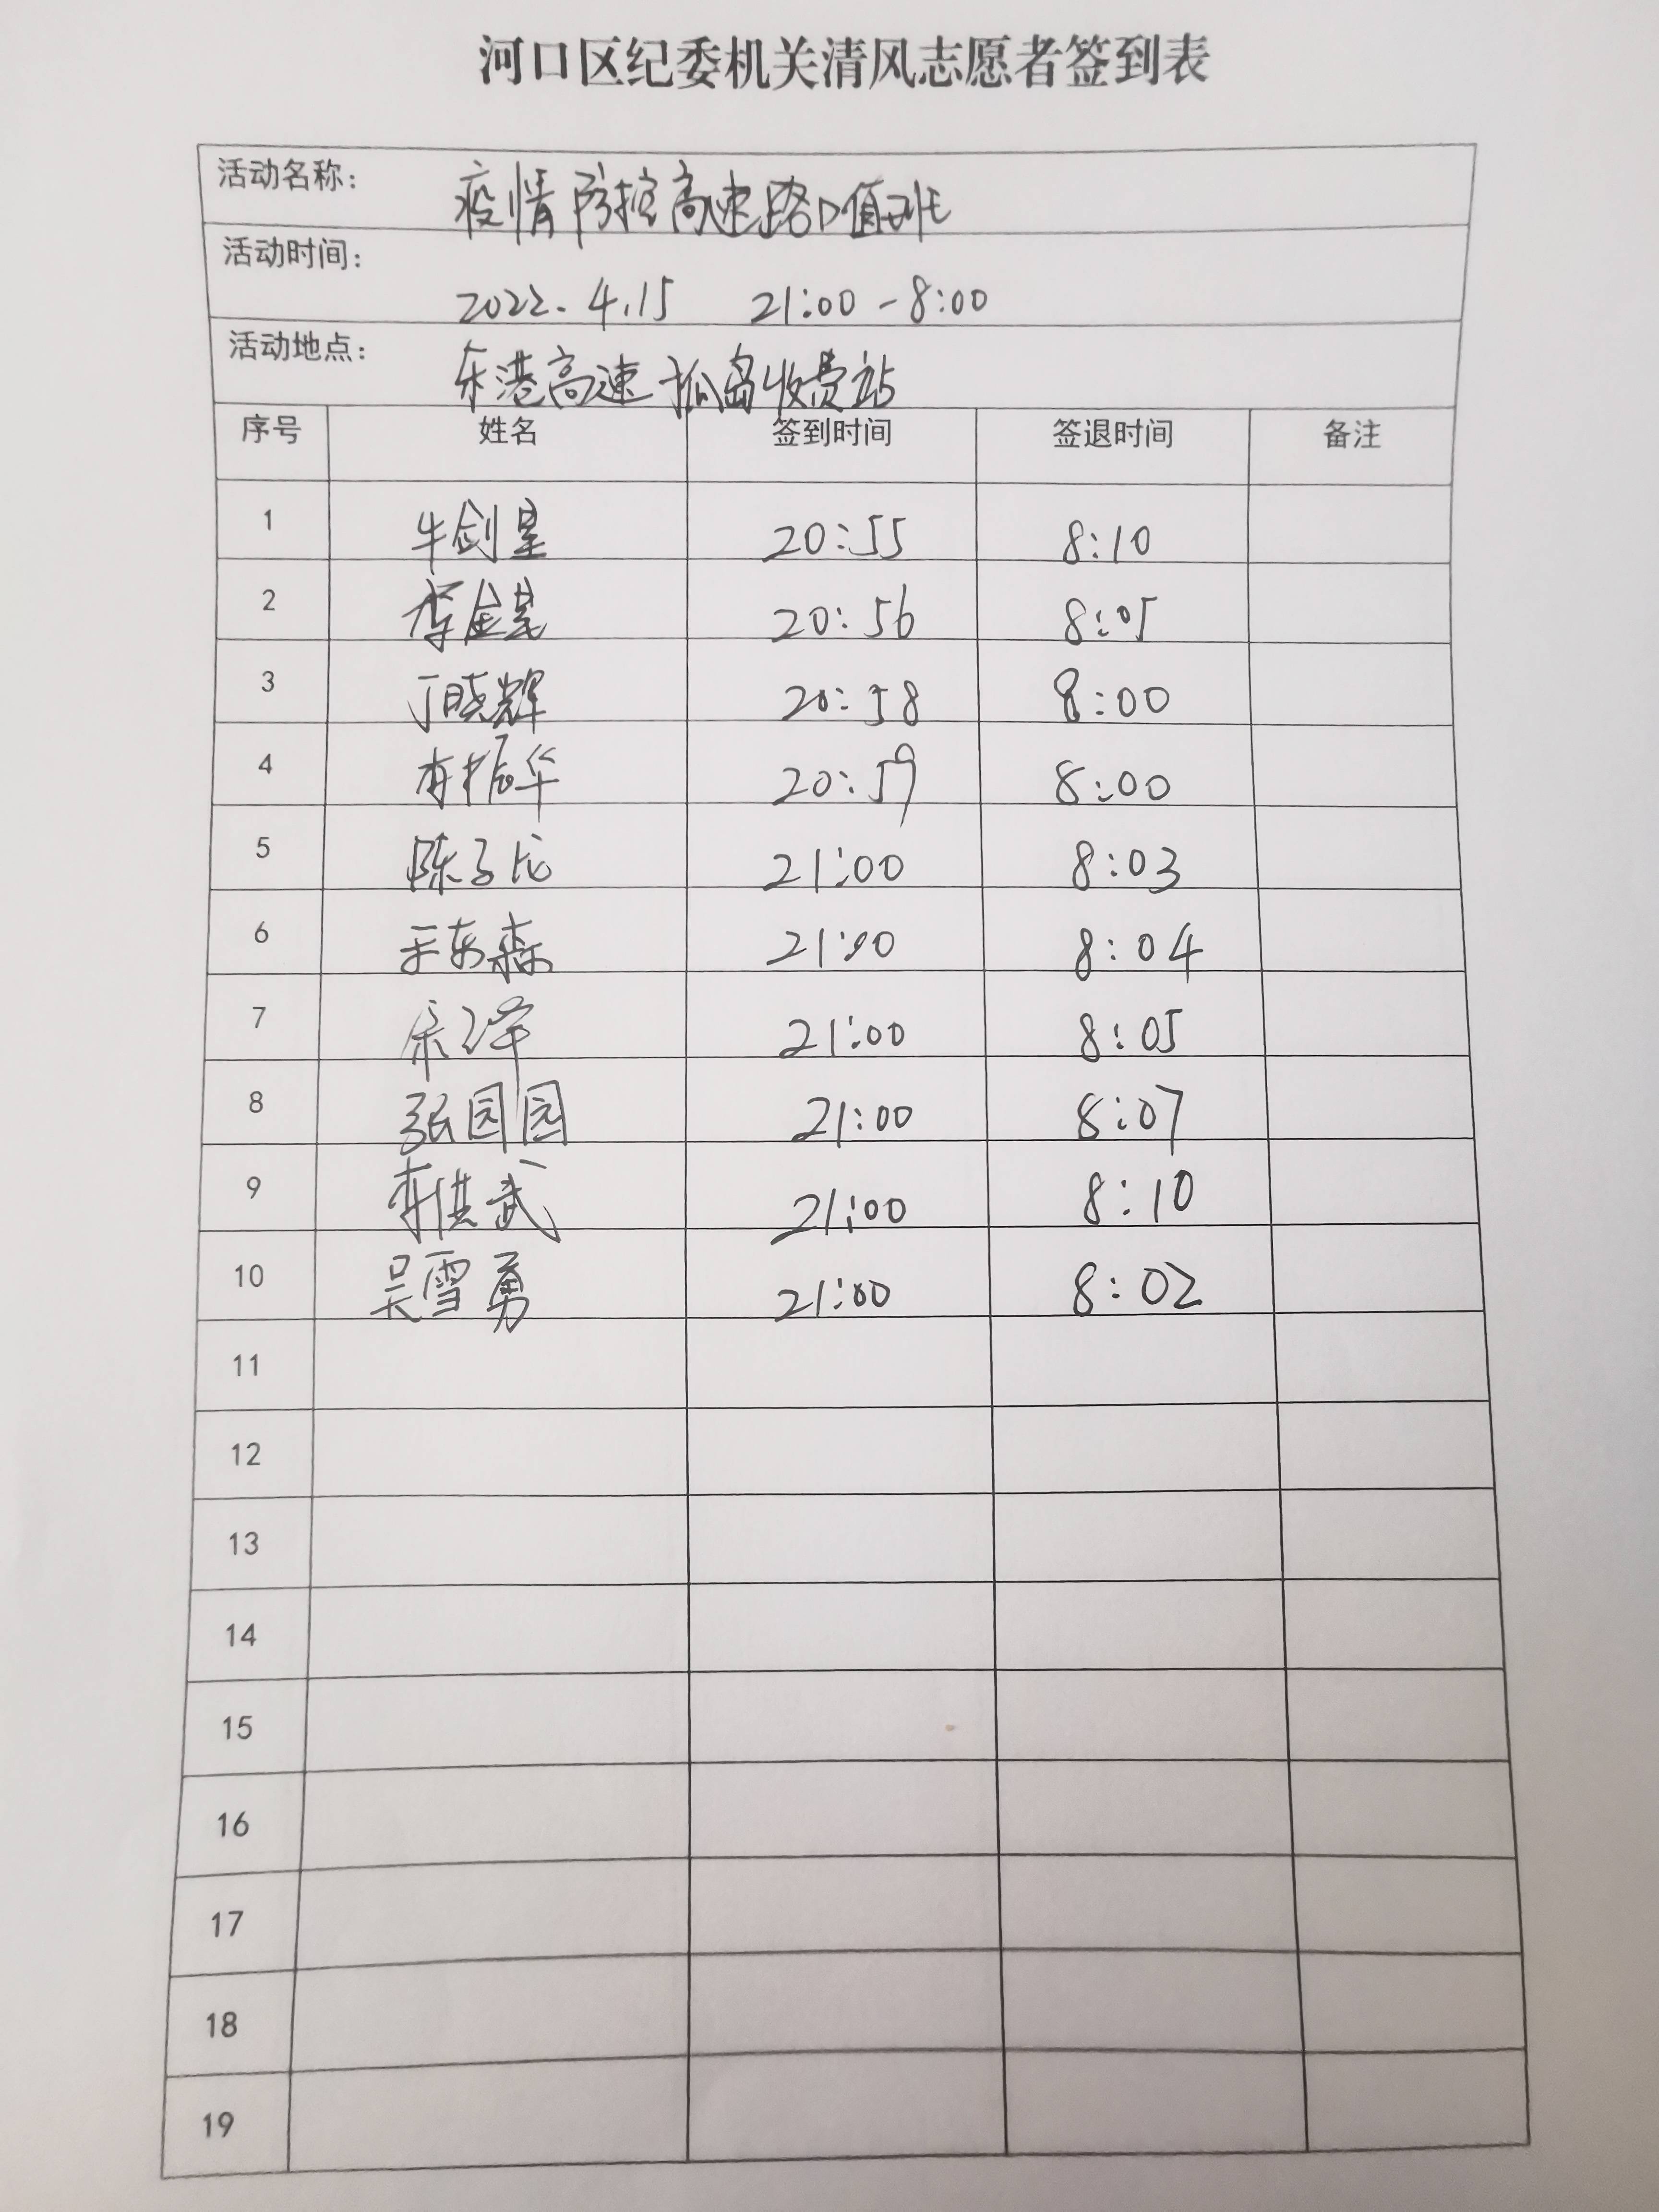 河口区纪委机关清风志愿者签到表
活动名称： 疫情防控高速路口值班
活动时间： 2022.4.15 21:00-8:00
活动地点： 东港高速孤岛收费站
序号 姓名 签到时间 签退时间 备注
1 牛剑星 20:55 8:10
2 20:56 8:05
3 丁晓辉 20:58 8:00
4 李振华 20:59 8:00
5 陈子龙 21:00 8:03
6 王东森 21:00 8:04
7 宋泽 21:00 8:05
8 张园园 21:00 8:07
9 李洪武 21:00 8:10
10 吴雪勇 21:00 8:02
11
12
13
14
15
16
17
18
19